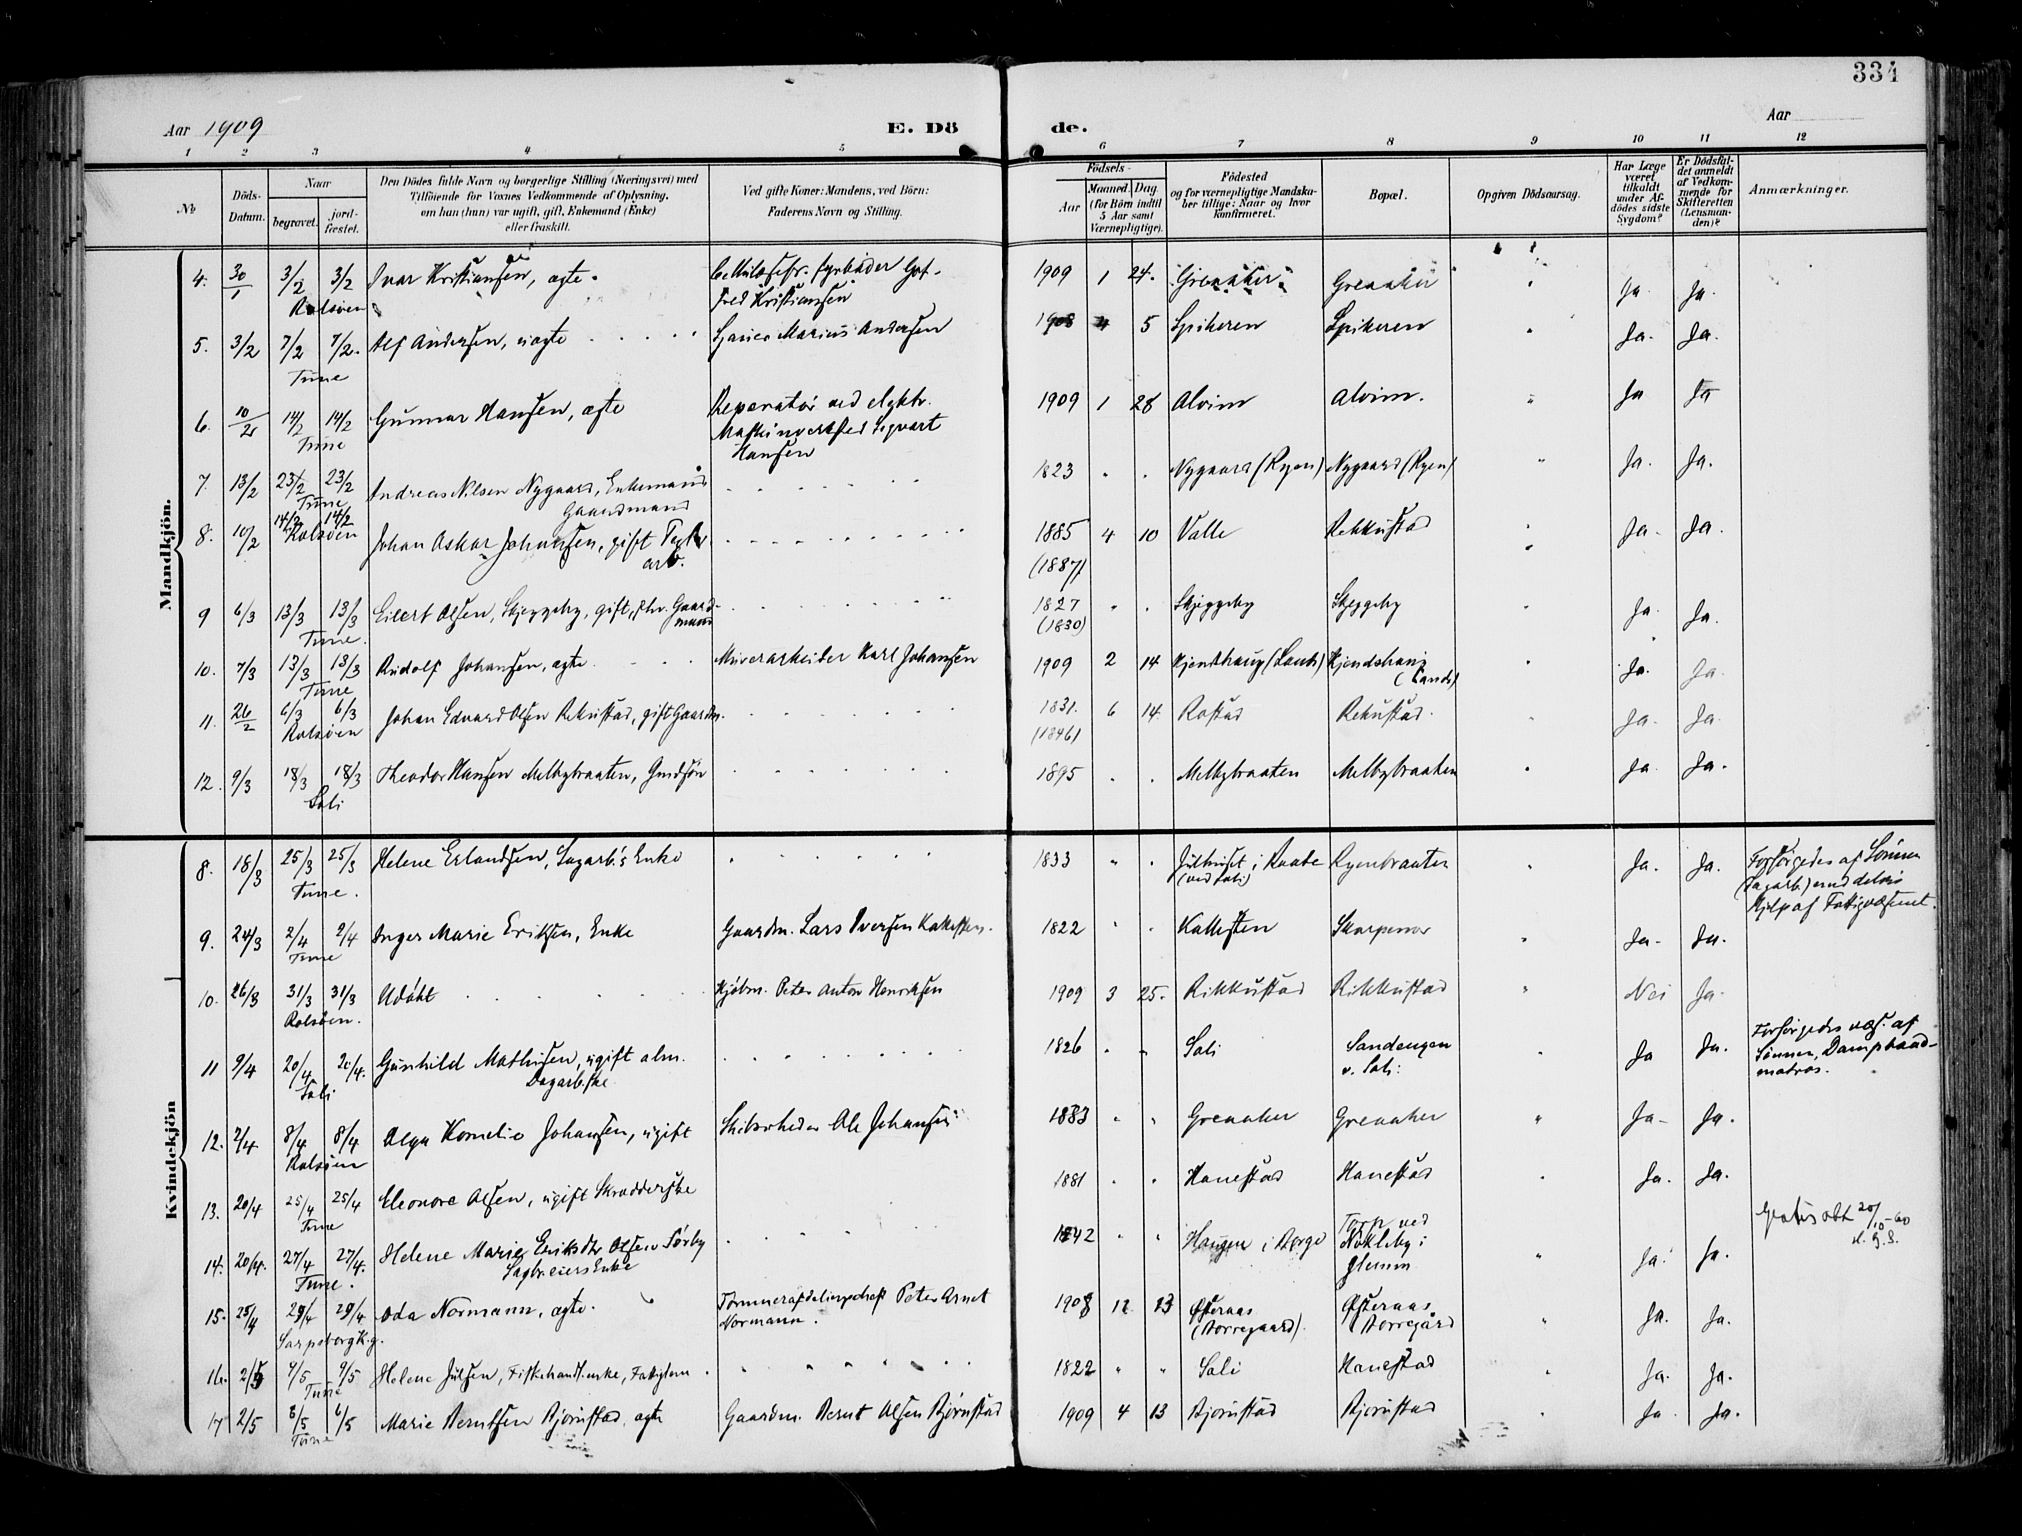 334
Aar 1909
E. Dö
de.
Aar
1 2 3 4 5 6 7 8 9 10 11 12
№
Döds-Datum.
Naar
begravet.
jord-fæstet.
Den Dödes fulde Navn og borgerlige Stilling (Næringsvei) med
Tilföiende for Voxnes Vedkommende af Oplysning,
om han (hun) var ugift, gift, Enkemand (Enke)
eller fraskilt.
Ved gifte Koner: Mandens, ved Börn:
Faderens Navn og Stilling.
Födsels-
Aar
Maaned. Dag.
(for Börn indtil
5 Aar samt
Værnepligtige).
Födested
og for værnepligtige Mandska-
ber tillige: Naar og hvor
konfirmeret.
Bopæl.
Opgiven Dödsaarsag.
Har Læge
været
tilkaldt
under Af-
dödes sidste
Sygdom?
Er Dödsfal-
det anmeldt
af Vedkom-
mende for
Skifteretten
(Lensman-
den)?
Anmærkninger.
Mandkjön.
4. 30/1 3/2 3/2 Ivar Kristiansen, ægte. Cellulosefr. fyrbøder Got- 1909 1 24. Greaaker Greaaker " Ja Ja.
Rolsøen fred Kristiansen
5. 3/2 7/2 7/2. Alf Andersen, uægte Marius Andersen 1908 4 5 Spikeren Spikeren " Ja. Ja.
Tune
6. 10/2 14/2 14/2 Gunnar Hansen, ægte Reparatør ved elektr. 1909 1 28 Alvim Alvim. " Ja Ja
Tune Maskinverksted Sigvart
Hansen
7. 13/2 23/2 23/2 Andreas Nilsen Nygaard, Enkemand 1823 " " Nygaard (Ryen) Nygaard (Ryen) " Ja. Ja.
Tune Gaardmand
8. 10/2 14/2 14/2 Johan Oskar Johansen, gift Tegl- 1885 4 10 Valle Rekkustad " Ja. Ja.
Rolsøen arb. (1887)
9 6/3 13/3 13/3 Eilert Olsen, Skjeggeby, gift, fhv. Gaard- 1827 " " Skjeggeby Skjeggeby " Ja. Ja.
Tune. mand (1830)
10. 7/3 13/3 13/3 Rudolf Johansen, ægte Murerarbeider Karl Johansen 1909 2 14 Kjendshaug (Lande) Kjendshaug " Ja. Ja.
Tune (Lande)
11. 26/2 6/3 6/3 Johan Edvard Olsen Rekustad, gift Gaardm. 1831. 6 14 Rostad Rekustad. " Ja. Ja.
Rolsøen (1846)
12. 9/3 18/3 18/3 Theodor Hansen Melbybraaten, 1895 " " Melbybraaten Melbybraaten " Ja. Ja.
Soli
Kvindekjön
8. 18/3 25/3 25/3 Helene Erlandsen, Sagarb's Enke 1833 " " Julhuset i Raade Ryenbraaten Ja. Ja. Forsørgedes af Sønnen
Tune. (ved Soli) (Sagarb.) med delvis
Hjelp af Fattigvæsenet.
9. 24/3 2/4 2/4 Inger Marie Eriksen, Enke Gaardm. Lars Iversen Kallesten. 1822 " " Kallesten Skarpenor " Ja. Ja.
Tune
10. 26/3 31/3 31/3 Udøbt Kjøbm. Peter Anton Henriksen 1909 3 25. Rikkustad Rikkustad " Nei Ja.
Rolsøen.
11 9/4 20/4 20/4. Gunhild Mathisen, ugift alm. 1826 " " Soli Sandengen " Ja Ja. Forsørgedes væs. af
Soli Dagarb.ske v. Soli. Sønnen, Dampbaad-
matros.
12. 2/4 8/4 8/4 Olga Kornelie Johansen, ugift Skibsrheder Ole Johansen 1883 " " Greaaker Greaaker " Ja. Ja.
Rolsøen
13. 20/4 25/4 25/4 Eleonore Olsen, ugift Skrædderske 1881 " " Hanestad Hanestad " Ja. Ja.
Tune
14. 20/4. 27/4 27/4. Helene Marie Eriksdtr. Olsen Sørby 1842 " " Haugen i Borge Torp ved " Ja. Ja. Gratis att 20/10-60
Tune. Sagbr.eiers Enke Nøkleby i
Glemm
15. 25/4 29/4 29/4 Oda Normann, ægte. Tømmerafdelingschef Peter Arnet 1908 12 23 Østernaas Østernaas " Ja. Ja.
Sarpsborg K.g. Normann. (Borregaard). Borregård
16. 2/5 9/5 9/5 Helene Julsen, Fiskehandl.enke, Fattiglem 1822 " " Soli Hanestad " Ja. Ja.
Tune
17 2/5 6/5 6/5 Marie Berntsen Bjørnstad, ægte Gaardm. Bernt Olsen Bjørnstad 1909 4 13 Bjørnstad Bjørnstad " Ja Ja.
Tune